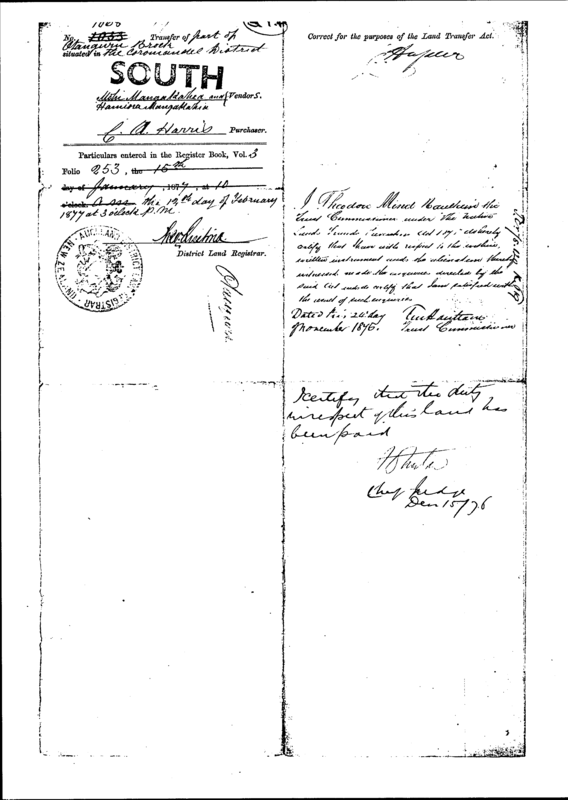 No. 1033 Transfer of part of
Block
situated in the Coromandel District
SOUTH
Mangakahia and Vendors.
Hamiora Mangakahia
C. A. Harris Purchaser.
Particulars entered in the Register Book, Vol. 3
Folio 253, the 15th
day of January, 1877, at 10
o'clock the 12th day of February
1877 at 3 o'clock P.M.
District Land Registrar.
AUCKLAND DISTRICT LAND REGISTRAR NEW ZEALAND
Correct for the purposes of the Land Transfer Act.
I Theodore Minet Haultain the
Trust Commissioner under the Native
Lands Frauds Prevention Act do hereby
certify that I have with respect to the within
written instrument and the alienation thereby
witnessed made the inquiries directed by the
said Act and do certify that I am satisfied with
the result of such inquiries
Dated this day
of November 1876. Trust Commissioner
I certify that the duty
in respect of this land has
been paid
Chief Judge
Dec 15/76